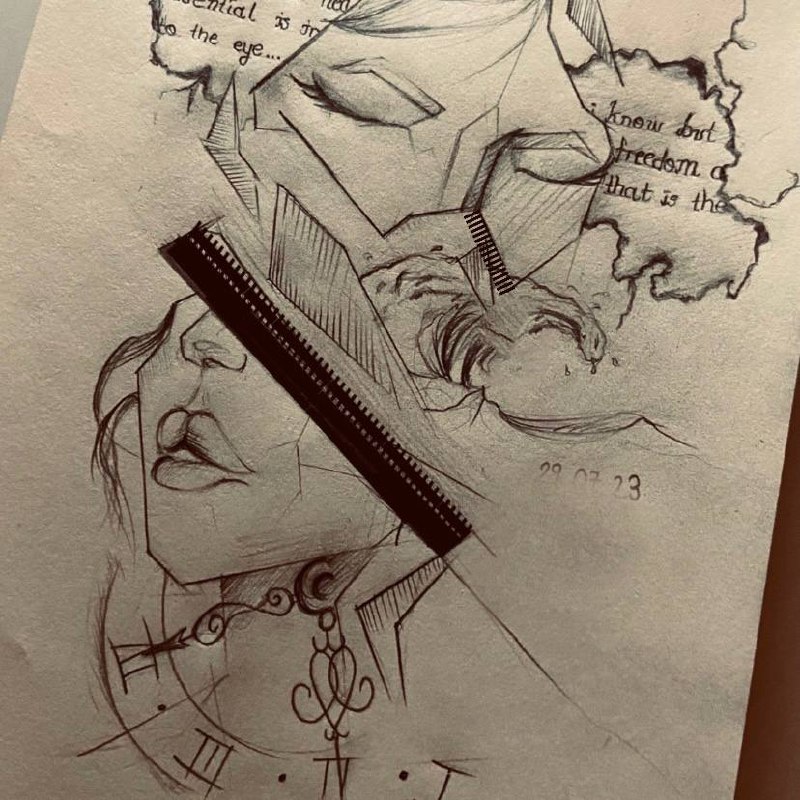 is in
to the eye...
i know but
freedom
that is the
29 07 23
II
III
IV